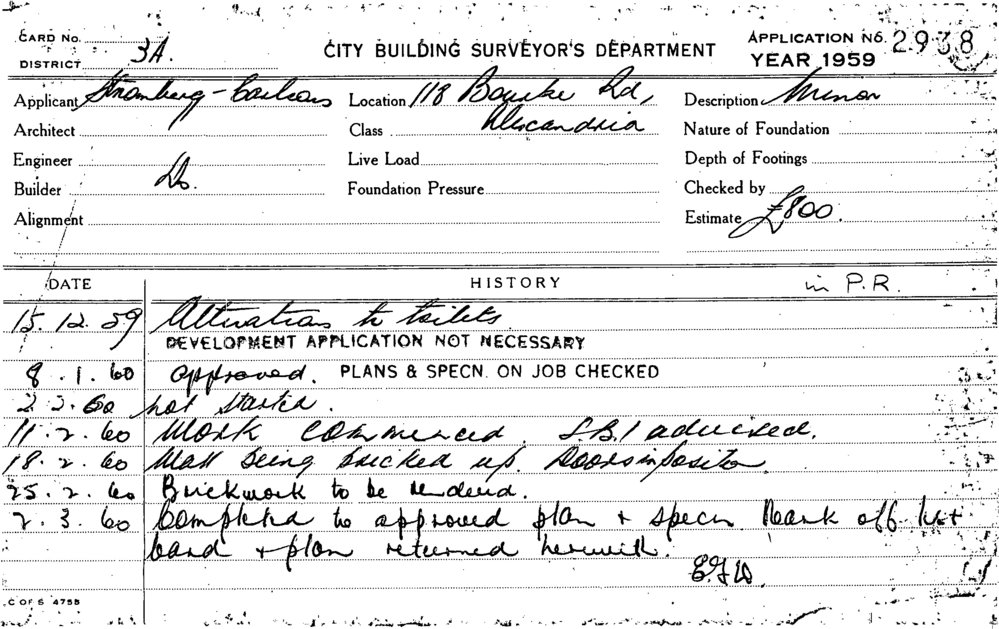 CARD NO.
DISTRICT 3A.
CITY BUILDING SURVEYOR'S DEPARTMENT
APPLICATION NO. 2938
YEAR 1959
Applicant Stromberg-Carlson Location 118 Bourke Rd, Description Minor
Architect Class Alexandria Nature of Foundation
Engineer Live Load Depth of Footings
Builder Do. Foundation Pressure Checked by
Alignment Estimate £800.
DATE HISTORY in P.R.
15.12.59 Alterations to toilets
DEVELOPMENT APPLICATION NOT NECESSARY
8.1.60 approved. PLANS & SPECN. ON JOB CHECKED
2.2.60 not started.
11.2.60 Work commenced. S.B.I advised.
18.2.60 Wall being bricked up. Doors in positn.
25.2.60 Brickwork to be rendered.
2.3.60 Completed to approved plan & specn. Mark off list
card & plan returned herewith.
C OF S 4758